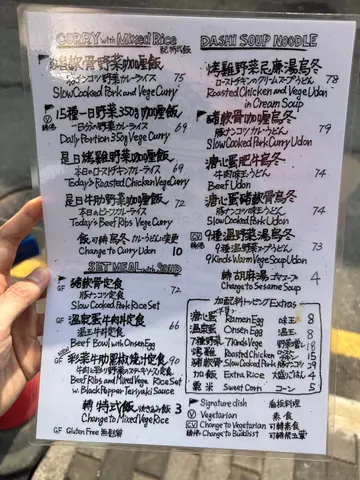 CURRY with Mixed Rice 配特式飯
豬軟骨野菜咖喱飯
豚ナンコツ野菜カレーライス 75
Slow Cooked Pork and Vege Curry
15種一日野菜350g咖喱飯
一日分の野菜カレーライス 69
Daily Portion 350g Vege Curry
是日烤雞野菜咖喱飯
本日のローストチキンカレーライス 69
Today's Roasted Chicken Vege Curry
是日牛肋野菜咖喱飯
本日のビーフカレーライス 76
Today's Beef Ribs Vege Curry
飯可轉烏冬 カレーうどんに変更
Change to Curry Udon 10
SET MEAL with SOUP
豬軟骨定食
豚ナンコツ定食 72
GF
Slow Cooked Pork Rice Set
温泉蛋牛丼定食
温玉牛丼定食 66
GF
Beef Bowl with Onsen Egg
彩菜牛肋黑椒燒汁定食
90
GF
Beef Ribs and Mixed Vege Rice Set
with Black Pepper Teriyaki Sauce
轉特式飯 3
Change to Mixed Rice
GF Gluten Free 無麩質
DASHI SOUP NOODLE
烤雞野菜忌廉湯烏冬
ローストチキンのクリームスープうどん 78
Roasted Chicken and Vege Udon
in Cream Soup
豬軟骨咖喱烏冬
豚ナンコツカレーうどん 79
Slow Cooked Pork Curry Udon
溏心蛋肥牛烏冬
74
Beef Udon
溏心蛋豬軟骨烏冬
74
Slow Cooked Pork Udon
9種温野菜湯烏冬
9種温野菜スープうどん 73
9 Kinds Warm Vege Soup Udon
轉胡麻湯 ゴマスープ 4
Change to Sesame Soup
加配料 トッピング Extras
溏心蛋 Ramen Egg 味玉 8
温泉蛋 Onsen Egg 温玉 8
7種野菜 7 Kinds Vege 18
烤雞 Roasted Chicken チキン 15
豬軟骨 Slow Cooked Pork 29
加/轉 Extra Rice 4
粟米 Sweet Corn コーン 5
Signature dish 看板料理
V Vegetarian 素食
CV Change to Vegetarian 可轉素食
Change to Buddhist